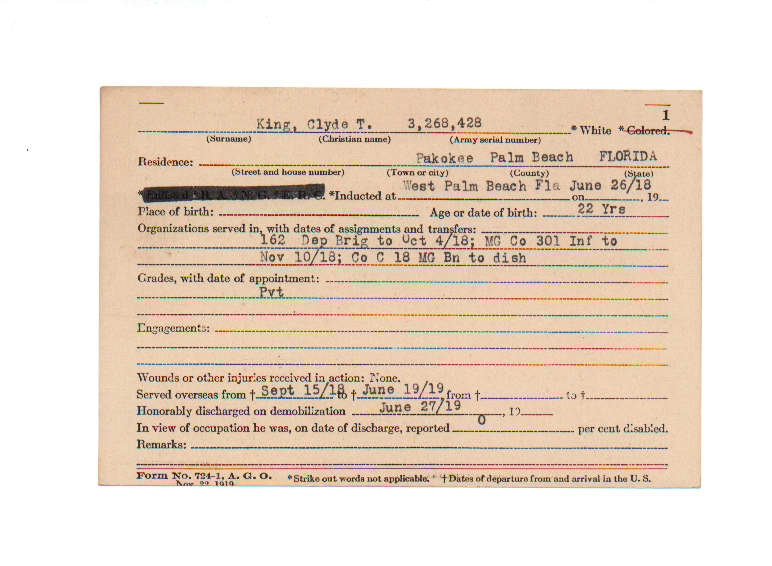 1
King, Clyde T. 3,268,428 * White * Colored.
(Surname) (Christian name) (Army serial number)
Residence: Pakokee Palm Beach FLORIDA
(Street and house number) (Town or city) (County) (State)
* R. A. N. G. E. R. C. *Inducted at West Palm Beach Fla on June 26/18, 19
Place of birth: Age or date of birth: 22 Yrs
Organizations served in, with dates of assignments and transfers:
162 Dep Brig to Oct 4/18; MG Co 301 Inf to
Nov 10/18; Co C 18 MG Bn to dish
Grades, with date of appointment:
Pvt
Engagements:
Wounds or other injuries received in action: None.
Served overseas from † Sept 15/18 to † June 19/19, from † to †
Honorably discharged on demobilization June 27/19, 19
In view of occupation he was, on date of discharge, reported 0 per cent disabled.
Remarks:
Form No. 724-1, A. G. O. *Strike out words not applicable. † Dates of departure from and arrival in the U. S.
Nov. 22, 1919